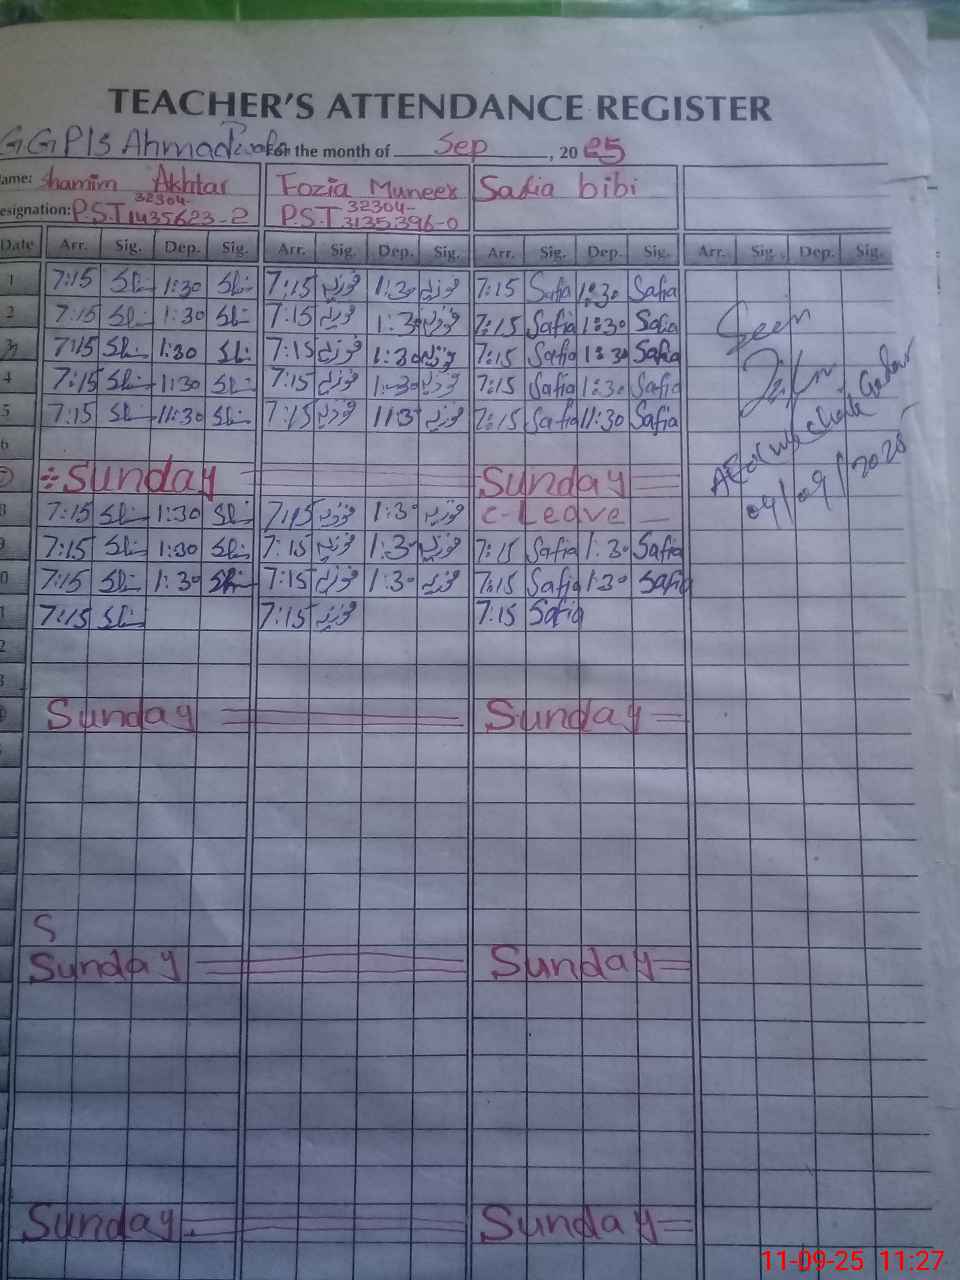 TEACHER'S ATTENDANCE REGISTER
GGP/s Ahmad For the month of Sep, 2025
ame: Shamim Akhtar Fozia Muneer Safia bibi
esignation: P.S.T 32304-1435623-2 P.S.T 32304-3135396-0
Date Arr. Sig. Dep. Sig. Arr. Sig. Dep. Sig. Arr. Sig. Dep. Sig. Arr. Sig. Dep. Sig.
1 7:15 1:30 7:15 فوزیہ 1:30 فوزیہ 7:15 Safia 1:30 Safia
2 7:15 1:30 7:15 فوزیہ 1:30 فوزیہ 7:15 Safia 1:30 Safia
3 7:15 1:30 7:15 فوزیہ 1:30 فوزیہ 7:15 Safia 1:30 Safia
4 7:15 1:30 7:15 فوزیہ 1:30 فوزیہ 7:15 Safia 1:30 Safia
5 7:15 11:30 7:15 فوزیہ 113 فوزیہ 7:15 Safia 11:30 Safia
6
7 Sunday Sunday
8 7:15 1:30 7:15 فوزیہ 1:30 فوزیہ C-Leave
9 7:15 1:30 7:15 فوزیہ 1:30 فوزیہ 7:15 Safia 1:30 Safia
0 7:15 1:30 7:15 فوزیہ 1:30 فوزیہ 7:15 Safia 1:30 Safia
1 7:15 7:15 فوزیہ 7:15 Safia
2
3
Sunday Sunday
S
Sunday Sunday
Sunday Sunday
Seen
04/09/2025
11-09-25 11:27